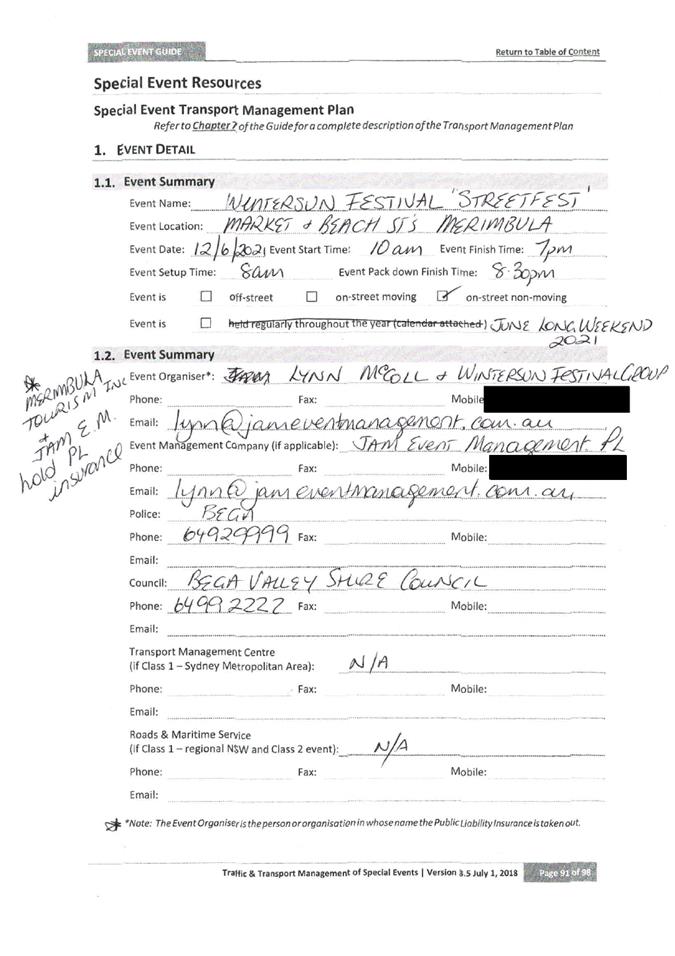 SPECIAL EVENT GUIDE
Return to Table of Content
Special Event Resources
Special Event Transport Management Plan
Refer to Chapter 7 of the Guide for a complete description of the Transport Management Plan
1. EVENT DETAIL
1.1. Event Summary
Event Name: WINTERSUN FESTIVAL 'STREETFEST'
Event Location: MARKET & BEACH ST'S MERIMBULA
Event Date: 12/6/2021 Event Start Time: 10am Event Finish Time: 7pm
Event Setup Time: 8am Event Pack down Finish Time: 8.30pm
Event is ☐ off-street ☐ on-street moving ☑ on-street non-moving
Event is ☐ held regularly throughout the year (calendar attached) JUNE LONG WEEKEND
2021
1.2. Event Summary
Event Organiser*: LYNN McCOLL & WINTERSUN FESTIVAL GROUP
MERIMBULA
TOURISM INC
+
JAM E.M.
hold PL
insurance
Phone: Fax: Mobile
Email: lynn@jameventmanagement.com.au
Event Management Company (if applicable): JAM Event Management PL
Phone: Fax: Mobile:
Email: lynn@jameventmanagement.com.au
Police: BEGA
Phone: 64929999 Fax: Mobile:
Email:
Council: BEGA VALLEY SHIRE COUNCIL
Phone: 6499 2222 Fax: Mobile:
Email:
Transport Management Centre
(if Class 1 – Sydney Metropolitan Area): N/A
Phone: Fax: Mobile:
Email:
Roads & Maritime Service
(if Class 1 – regional NSW and Class 2 event): N/A
Phone: Fax: Mobile:
Email:
*Note: The Event Organiser is the person or organisation in whose name the Public Liability Insurance is taken out.
Traffic & Transport Management of Special Events | Version 3.5 July 1, 2018 Page 91 of 98